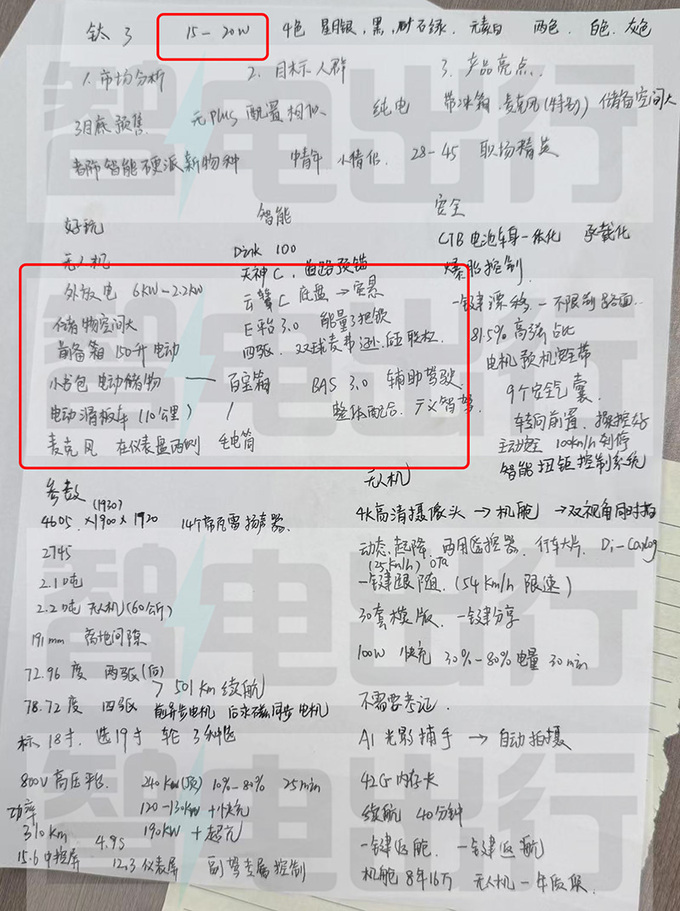 钛3 15-20W 4色 星月银,黑,砂石绿, 元素白 两色 白色 灰色
1.市场分析 2.目标人群 3.产品亮点
3月底预售 元PLUS配置相似 纯电 带冰箱 麦克风(特别) 储备空间大
老师智能硬派新物种 中青年 小情侣. 28-45 职场精英
好玩 智能 安全
无人机 Dink 100 CTB电池车身一体化 承载化
外放电 6KW-2.2KW 天神C, 爆胎控制
储物空间大 云辇C 底盘 一键漂移
前备箱 150升 电动 E平台3.0 能量3把锁 81.5%高强占比
小书包 电动储物 — 百宝箱 四驱, 双球麦弗逊 电机预机安全带
电动滑板车(10公里) BAS 3.0 辅助驾驶 9个安全气囊
麦克风 在仪表盘两侧 手电筒 整体配合. 天义智驾 转向前置, 操控好
主动安全 100km/h刹停
智能扭矩控制系统
参数 无人机
(1930)
4605 ×1900×1920 14个帝瓦雷扬声器 4K高清摄像头→机舱→双视角同时拍
2745 动态起降 两用遥控器 行车大片
(25km/h) OTA
2.1吨 一键跟随 (54 Km/h 限速)
2.2吨 无人机(60公斤) 30套模版, 一键分享
191mm 离地间隙 100W 快充 30%-80%电量 30min
72.96度 两驱(后)
> 501Km续航
78.72度 四驱 前异步电机 后永磁同步电机 不需要考证.
标18寸, 选19寸 轮 3种选 AI光影捕手 → 自动拍摄
800V高压平台 240KW(顶) 10%-80% 25min 42G内存卡
功率 120-130KW +快充 续航 40分钟
310km 4.9S 190KW +超充 一键返舱, 一键返航
15.6中控屏 12.3仪表屏 副驾专属控制 机舱8年16万 无人机一年质保
智电出行
智电出行
智电出行